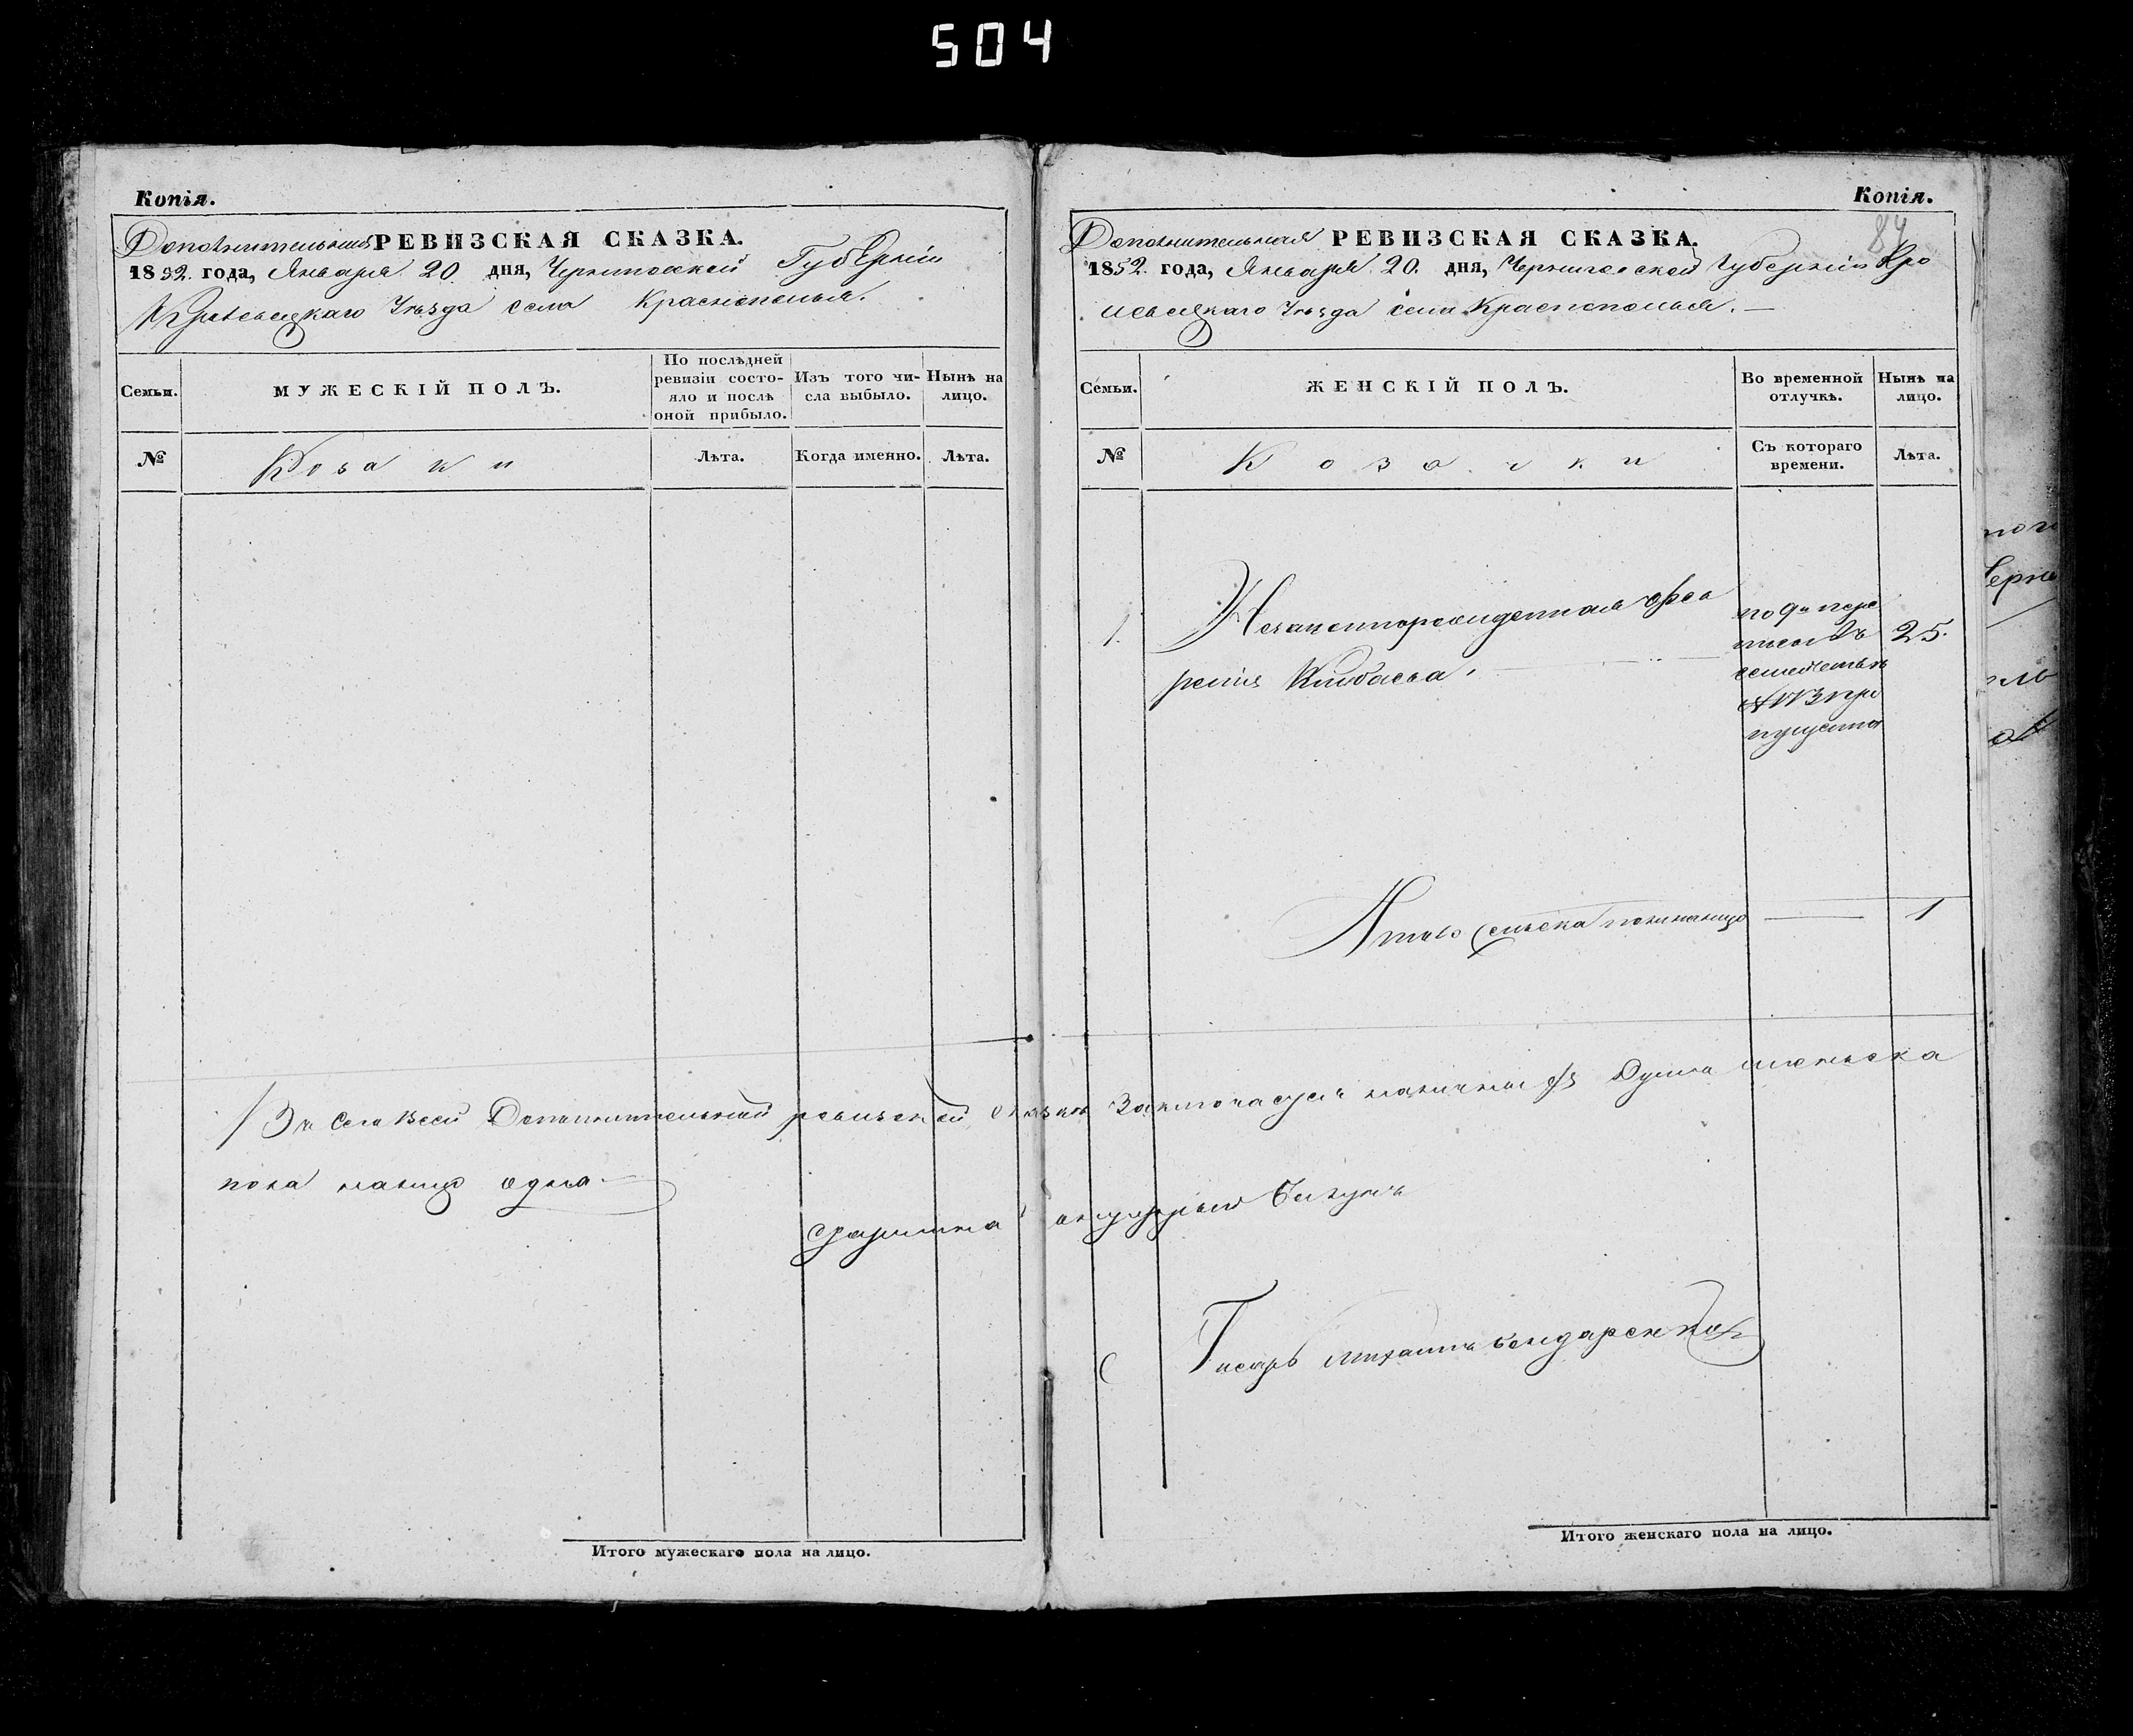 504
Копія.
Дополнительная РЕВИЗСКАЯ СКАЗКА.
1852. года, Января 20 дня, Черниговской Губерніи
Кролевецкаго Уѣзда села Краснополья.
Семьи.
МУЖЕСКІЙ ПОЛЪ.
По послѣдней
ревизіи состо-
яло и послѣ
оной прибыло.
Изъ того чи-
сла выбыло.
Нынѣ на
лицо.
№
Козаки
Лѣта.
Когда именно.
Лѣта.
Итого мужескаго пола на лицо.
Копія.
84
Дополнительная РЕВИЗСКАЯ СКАЗКА.
1852. года, Января 20. дня, Черниговской Губерніи Кро
левецкаго Уѣзда села Краснополья. —
Семьи.
ЖЕНСКІЙ ПОЛЪ.
Во временной
отлучкѣ.
Нынѣ на
лицо.
№
Козачки
Съ котораго
времени.
Лѣта.
1. 25.
по 9й пере
писи въ
семействѣ
пущена
Итого женска пола налицо — 1
Въ сей всей Дополнительной ревизской сказкѣ Заключается наличныхъ Душа женска
пола налицо одна.
Писарь Михаилъ Бондаренко
Итого женскаго пола на лицо.